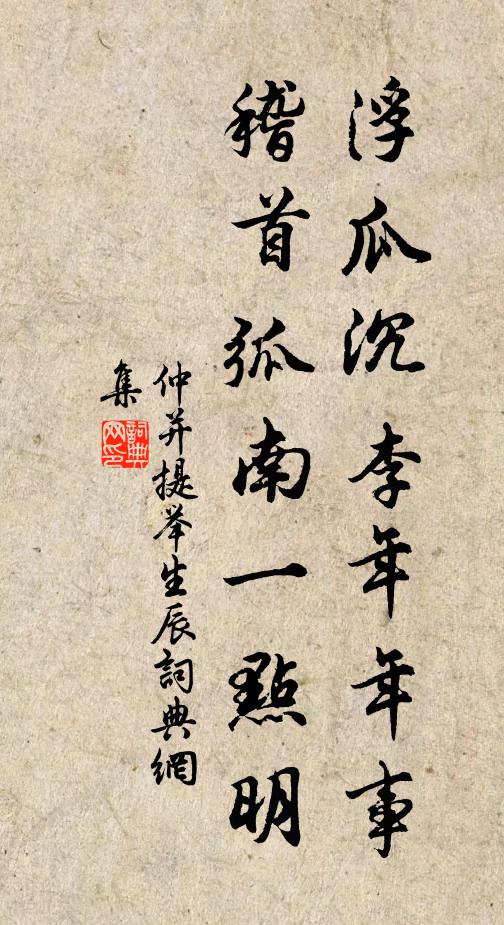 浮瓜沉李年年事
稽首弧南一點明
仲并提举生辰詞典網
集
詞典网印